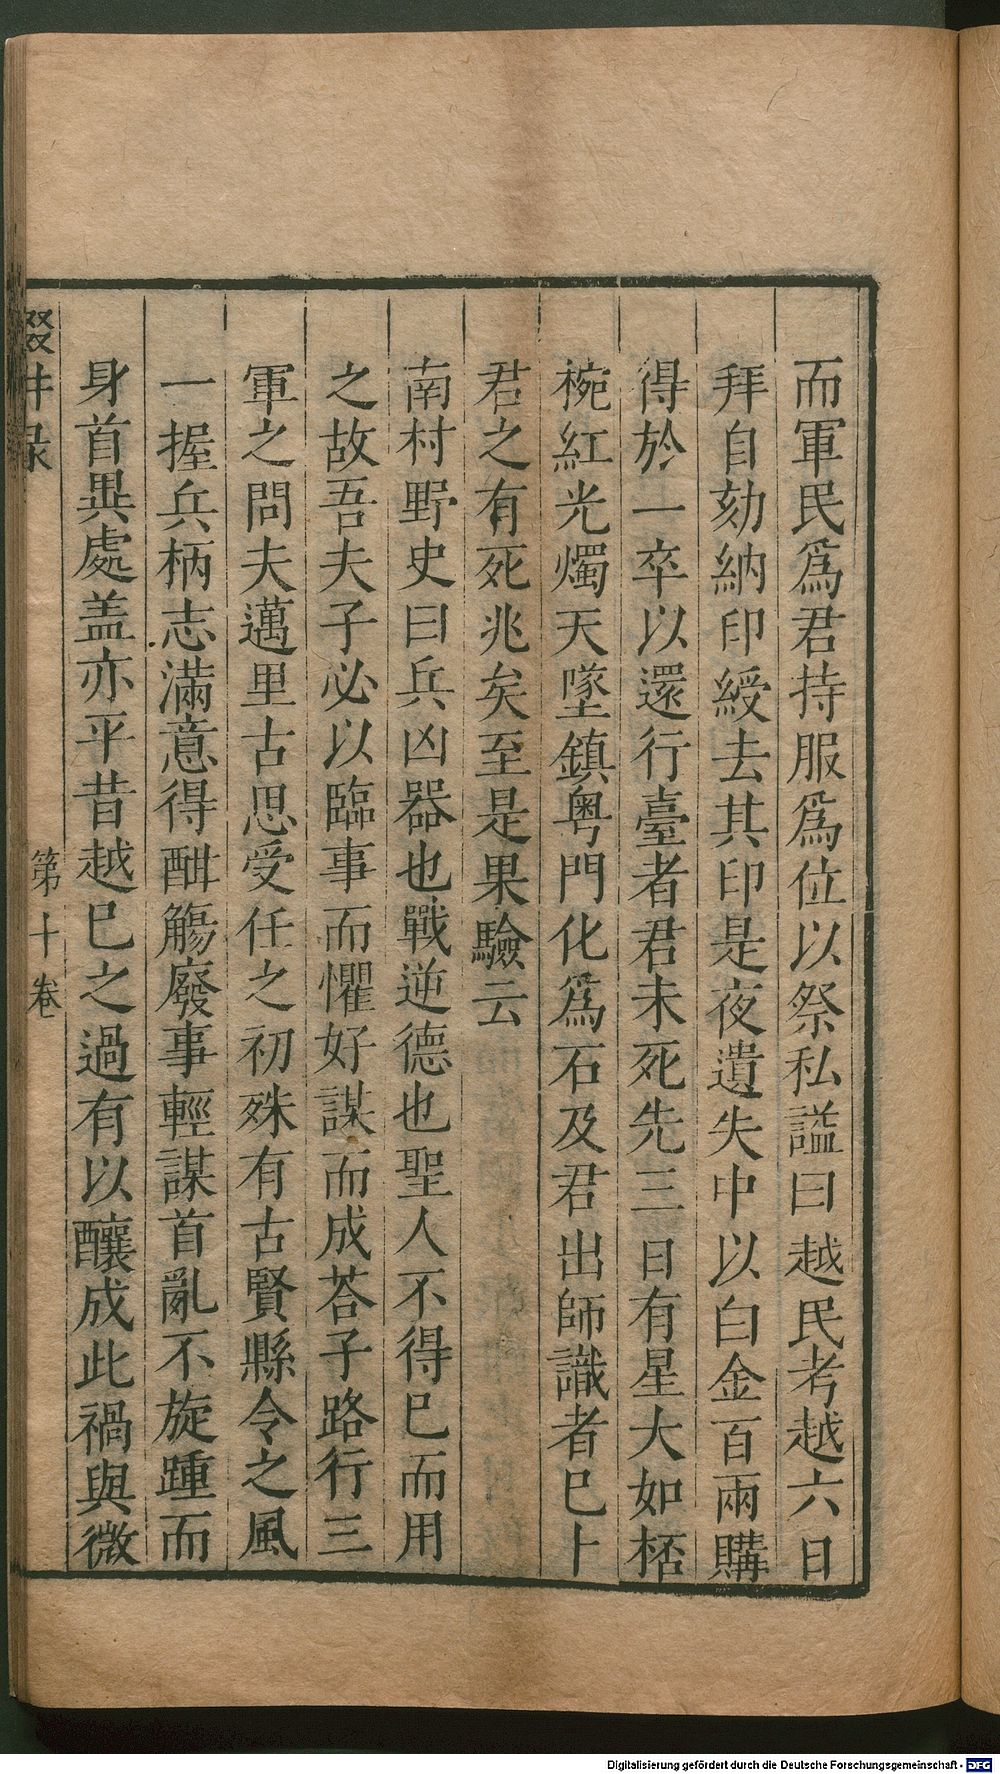 而軍民爲君持服爲位以祭私謚曰越民考越六日
拜自劾納印綬去其印是夜遺失中以白金百兩購
得於一卒以還行臺者君未死先三日有星大如桮
椀紅光燭天墜鎮粤門化爲石及君出師識者巳卜
君之有死兆矣至是果驗云
南村野史曰兵凶器也戰逆德也聖人不得巳而用
之故吾夫子必以臨事而懼好謀而成荅子路行三
軍之問夫邁里古思受任之初殊有古賢縣令之風
一握兵柄志滿意得酣觴廢事輕謀首亂不旋踵而
身首異處盖亦平昔越巳之過有以釀成此禍與微
第十卷
Digitalisierung gefördert durch die Deutsche Forschungsgemeinschaft - DFG